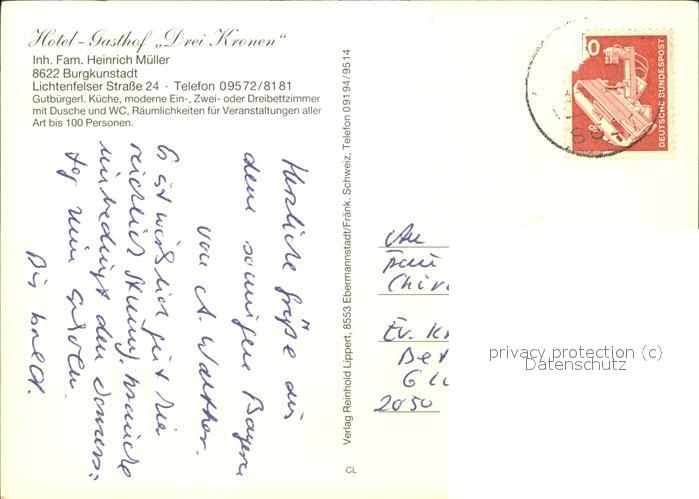 Hotel-Gasthof „Drei Kronen"
Inh. Fam. Heinrich Müller
8622 Burgkunstadt
Lichtenfelser Straße 24 · Telefon 09572/8181
Gutbürgerl. Küche, moderne Ein-, Zwei- oder Dreibettzimmer
mit Dusche und WC, Räumlichkeiten für Veranstaltungen aller
Art bis 100 Personen.
Herzliche Grüße aus
dem sonnigen Bayern
von A. Walther.
Es ist wirklich gut hier
reichlich
unbedingt den
tag zum
Bis bald.
Verlag Reinhold Lippert, 8553 Ebermannstadt/Fränk. Schweiz, Telefon 09194/9514
CL
0
DEUTSCHE BUNDESPOST
An
Frau
Ev. K
Be
2050
privacy protection (c)
Datenschutz